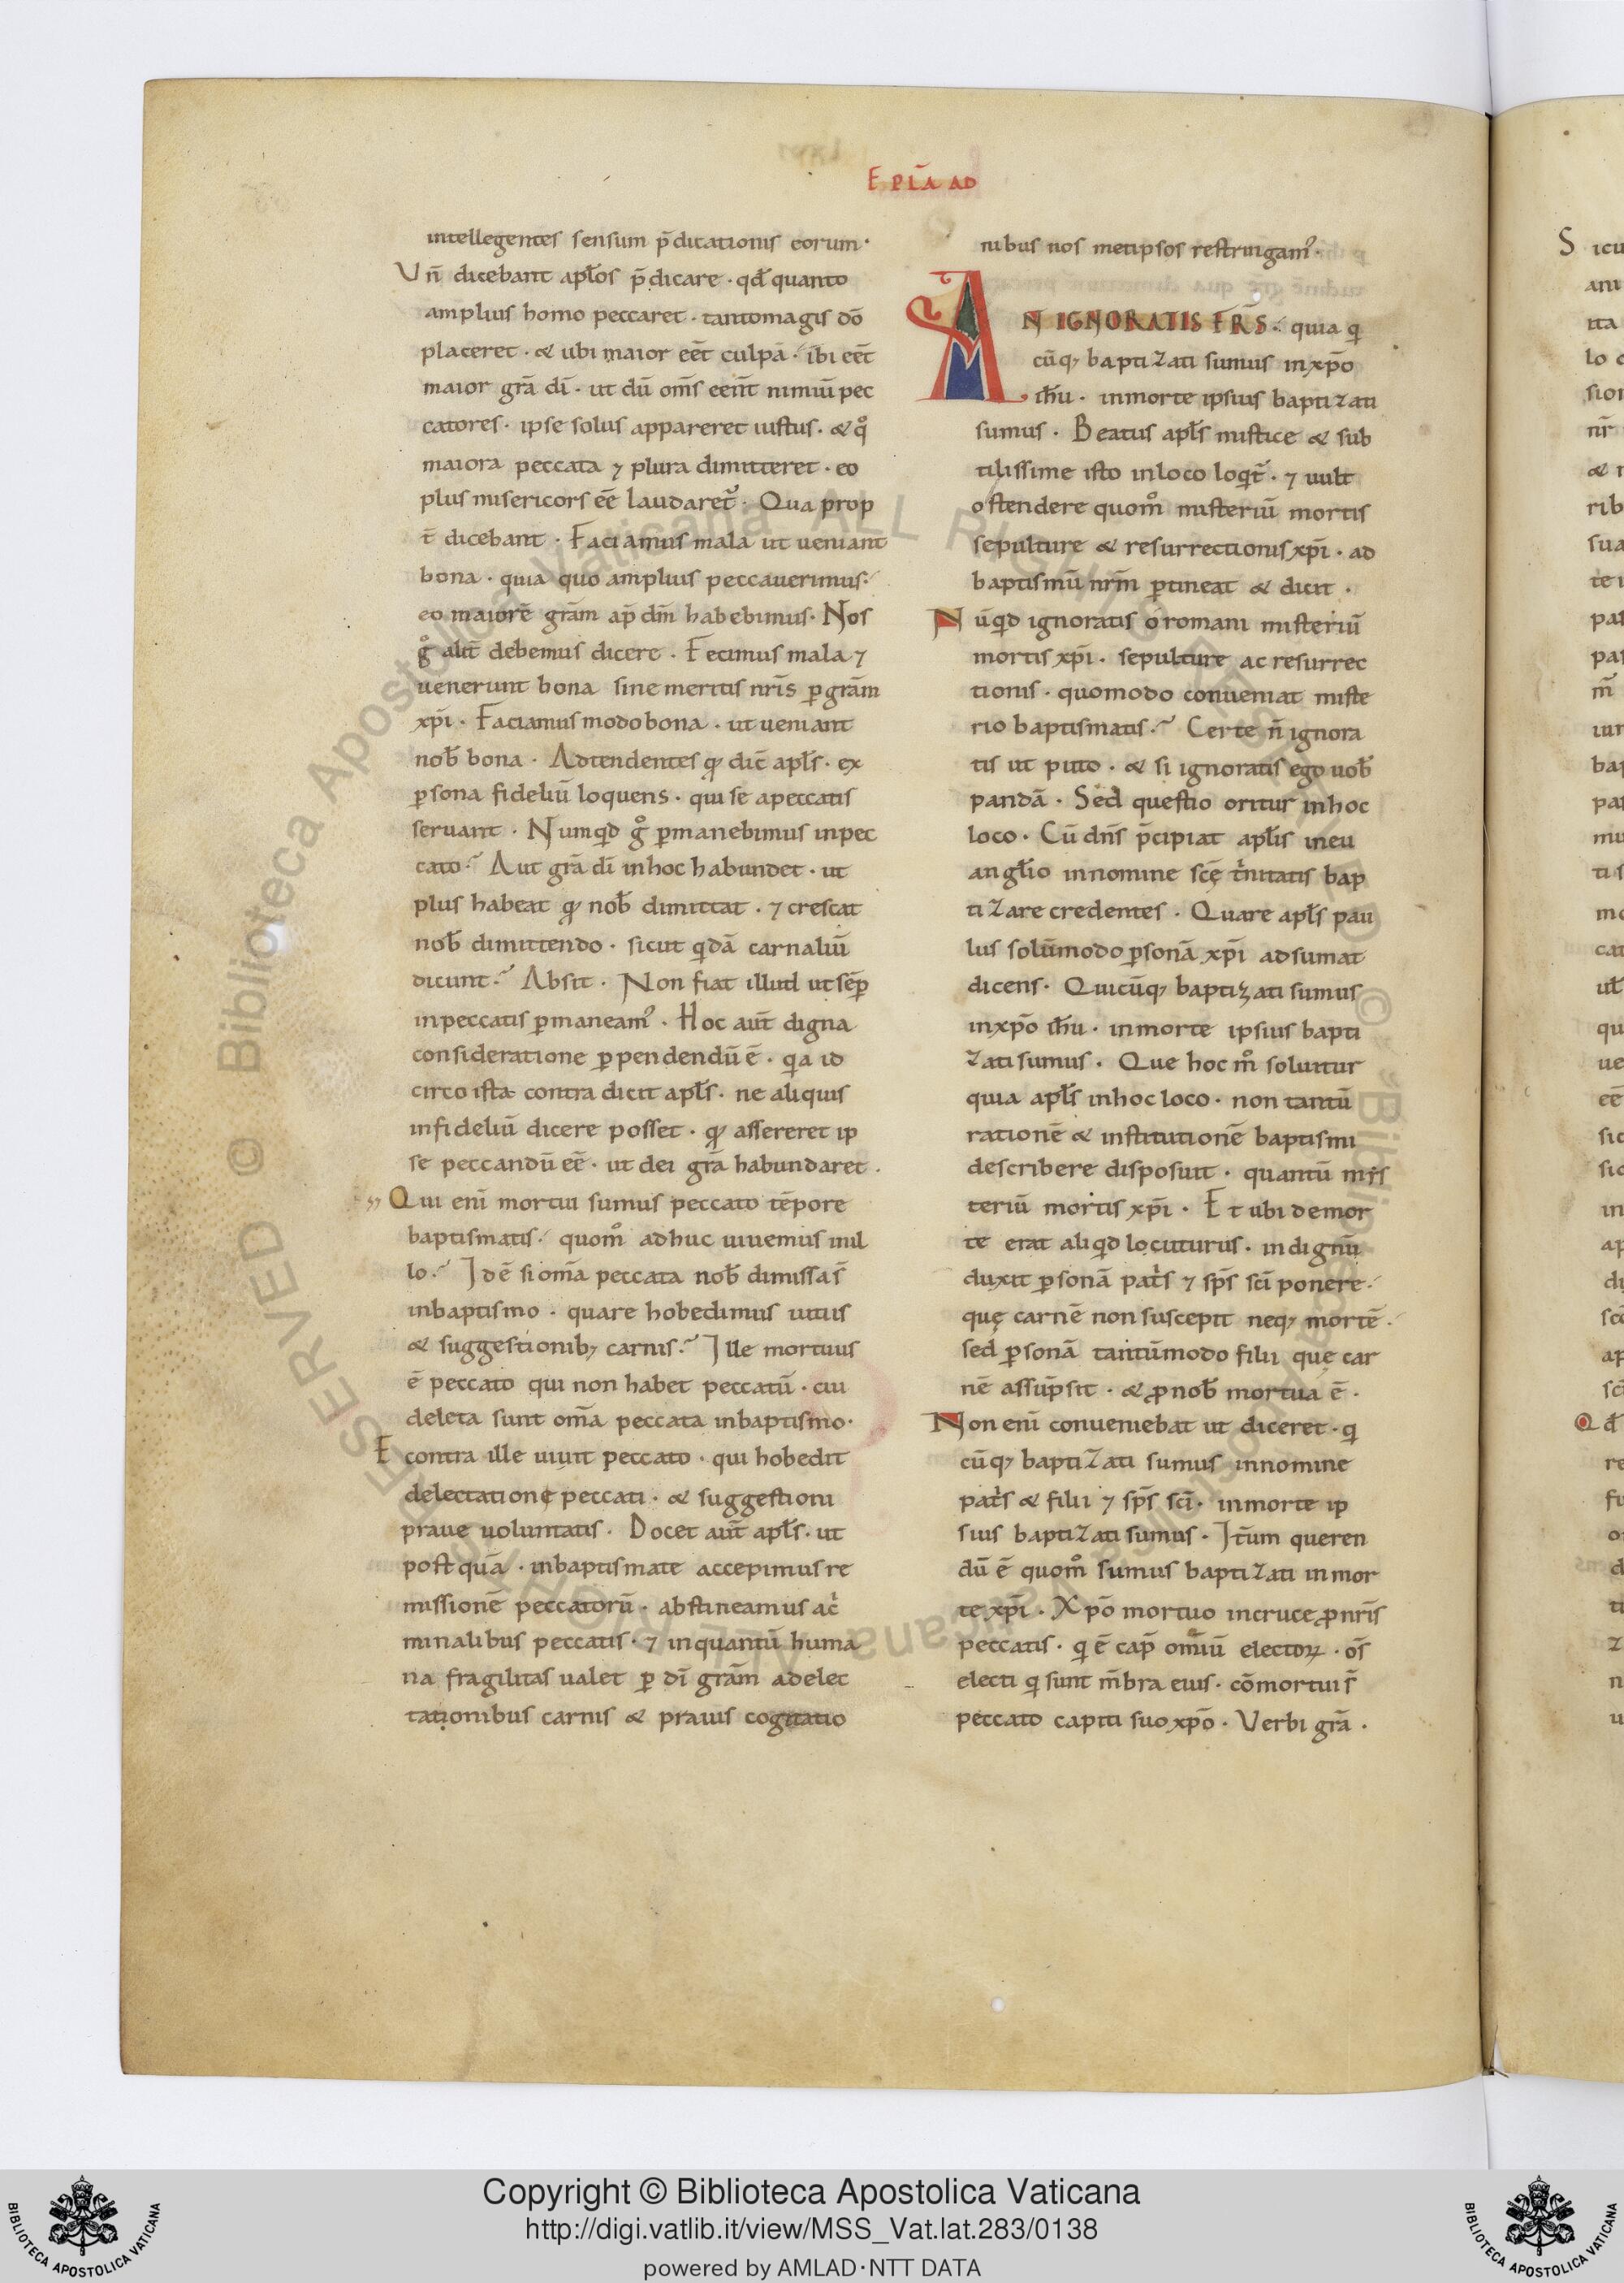 EPLA AD
intellegentes sensum p̄dicationis eorum·
Vn̄ dicebant apl̄os p̄dicare · qd̄ quanto
amplius homo peccaret · tantomagis dō
placeret · & ubi maior eēt culpa · ibi eēt
maior grā dī · ut dū om̄s eēnt nimiū pec
catores · ipse solus appareret iustus · & q°
maiora peccata ⁊ plura dimitteret · eo
plus misericors eē laudaret᷑ · Qua prop
t̄ dicebant · Faciamus mala ut ueniant
bona · quia quo amplius peccauerimus·
eo maiorē grām ap̄ dm̄ habebimus · Nos
g° alit̄ debemus dicere · Fecimus mala ⁊
uenerunt bona sine meritis nrīs ꝑ grām
xpī · Faciamus modo bona · ut ueniant
nob̄ bona · Adtendentes qd̵ dic̄ apl̄s · ex
ꝑsona fideliū loquens · qui se apeccatis
seruant · Numqd g° ꝑmanebimus inpec
cato? Aut grā dī inhoc habundet · ut
plus habeat qd̵ nob̄ dimittat · ⁊ crescat
nob̄ dimittendo · sicut qdā carnaliū
dicunt? Absit · Non fiat illud ut sēꝑ
inpeccatis ꝑmaneam᷒ · Hoc aut̄ digna
consideratione ꝑpendendū ē · qa id
circo ista contra dicit apl̄s · ne aliquis
infideliū dicere posset · qd̵ assereret ip
se peccandū eē · ut dei grā habundaret ·
Qui enī mortui sumus peccato tēpore
baptismatis · quom° adhuc uiuemus inil
lo? Idē si om̄a peccata nob̄ dimissa s̄
inbaptismo · quare hobedimus uitiis
& suggestionibꝫ carnis? Ille mortuus
ē peccato qui non habet peccatū · cui
deleta sunt om̄a peccata inbaptismo·
E contra ille uiuit peccato · qui hobedit
delectatione peccati · & suggestioni
praue uoluntatis · Docet aut̄ apl̄s · ut
postquā · inbaptismate accepimus re
missionē peccatorū · abstineamus ac̍
minalibus peccatis · ⁊ inquantū huma
na fragilitas ualet ꝑ dī grām adelec
tationibus carnis & prauis cogitatio
nibus nos metipsos restringam᷒ ·
AN IGNORATIS FRS · quia q
cūqꝫ baptizati sumus inxpō
ih̄u · inmorte ipsius baptizati
sumus · Beatus apl̄s mistice & sub
tilissime isto inloco loqt᷑ · ⁊ uult
ostendere quom° misteriū mortis
sepulture & resurrectionis xpī · ad
baptismū nrm̄ ꝑtineat & dicit ·
Nūqd ignoratis o romani misteriū
mortis xpī · sepulture ac resurrec
tionis · quomodo conueniat miste
rio baptismatis? Certe n̄ ignora
tis ut puto · & si ignoratis ego uob̄
pandā · Sed questio oritur inhoc
loco · Cū dn̄s p̄cipiat apl̄is ineu
anglīo innomine scę̄ t̍nitatis bap
tizare credentes · Quare apl̄s pau
lus solūmodo ꝑsonā xpī adsumat
dicens · Quicūqꝫ baptizati sumus
inxpō ih̄u · inmorte ipsius bapti
zati sumus · Que hoc m° soluitur
quia apl̄s inhoc loco · non tantū
rationē & institutionē baptismi
describere disposuit · quantū mis
teriū mortis xpī · Et ubi demor
te erat aliqd locuturus · indignū
duxit ꝑsonā pat̍s ⁊ sp̄s scī ponere·
quę carnē non suscepit neqꝫ mortē ·
sed ꝑsonā tantūmodo filii quę car
nē assūpsit · & ꝓnob̄ mortua ē ·
Non enī conueniebat ut diceret · q
cūqꝫ baptizati sumus innomine
pat̍s & filii ⁊ sp̄s scī · inmorte ip
sius baptizati sumus · It̄um queren
dū ē quom° sumus baptizati inmor
te xpī · Xpō mortuo incruce ꝓnrīs
peccatis · q ē cap̄ omiū electoꝝ · os̄
electi q sunt m̄bra eius · cōmortui s̄
peccato capiti suo xpō · Verbi grā ·
Copyright © Biblioteca Apostolica Vaticana
http://digi.vatlib.it/view/MSS_Vat.lat.283/0138
powered by AMLAD·NTT DATA
BIBLIOTECA APOSTOLICA VATICANA
BIBLIOTECA APOSTOLICA VATICANA